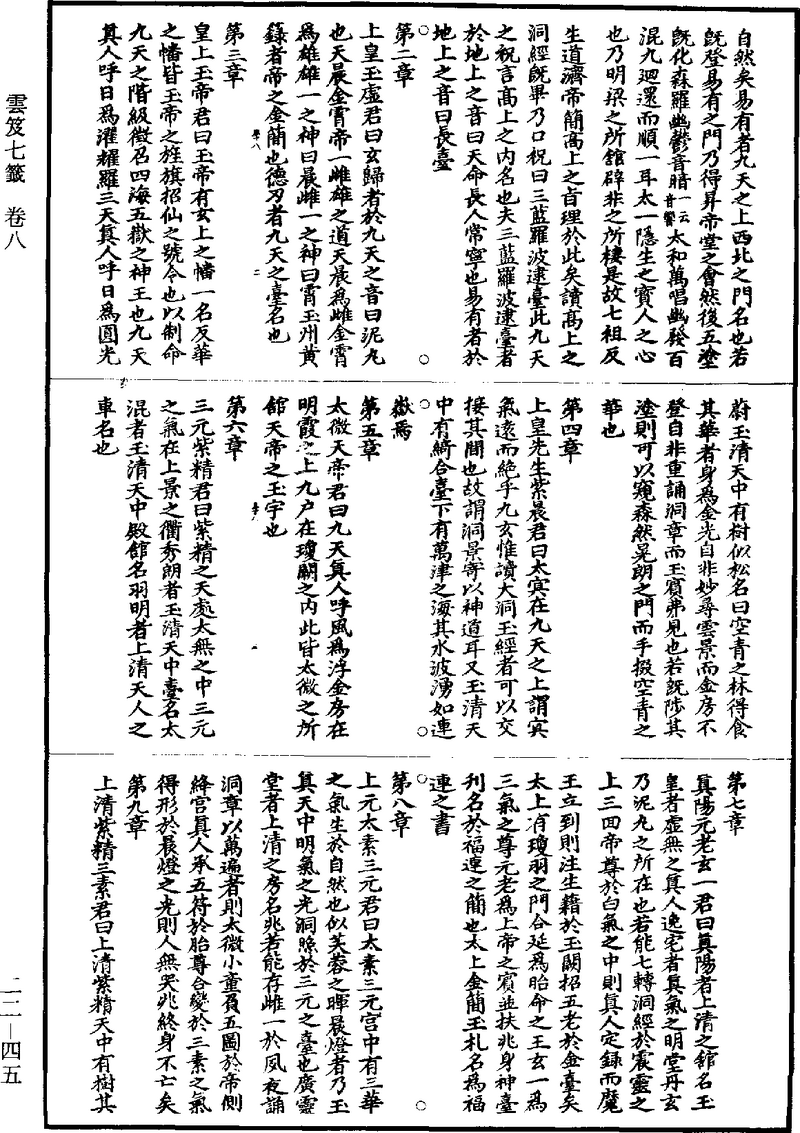 雲笈七籤 卷八
自然矣易有者九天之上西北之門名也若
既登易有之門乃得昇帝堂之會然後五塗
既化森羅幽鬱音暗一云音響太和萬唱幽發百
混九廻還而順一耳太一隱生之寳人之心
也乃明梁之所館辟非之所棲是故七祖反
生道濟帝簡高上之旨理於此矣讀高上之
洞經既畢乃口祝曰三藍羅波逮臺此九天
之祝言高上之内名也夫三藍羅波逮臺者
於地上之音曰天命長人常寧也易有者於
地上之音曰長臺
第二章
上皇玉虛君曰玄歸者於九天之音曰泥丸
也天晨金霄帝一雌雄之道天晨爲雌金霄
爲雄雄一之神曰晨雌一之神曰霄玉州黄
籙者帝之金簡也德刃者九天之臺名也
第三章
皇上玉帝君曰玉帝有玄上之幡一名反華
之幡皆玉帝之旌旗招仙之號令也以制命
九天之階級徵召四海五嶽之神王也九天
真人呼日爲濯耀羅三天真人呼日爲圓光
蔚玉清天中有樹似松名曰空青之林得食
其華者身爲金光自非妙尋雲景而金房不
登自非重誦洞章而玉賓弗見也若既陟其
塗則可以窺森然晃朗之門而手掇空青之
華也
第四章
上皇先生紫晨君曰太冥在九天之上謂冥
氣遠而絶乎九玄惟讀大洞玉經者可以交
接其間也故謂洞景寄以神道耳又玉清天
中有綺合臺下有萬津之海其水波湧如連
嶽焉
第五章
太微天帝君曰九天真人呼風爲浮金房在
明霞之上九户在瓊闕之内此皆太微之所
館天帝之玉宇也
第六章
三元紫精君曰紫精之天處太無之中三元
之氣在上景之衢秀朗者玉清天中臺名太
混者玉清天中殿館名羽明者上清天人之
車名也
第七章
真陽元老玄一君曰真陽者上清之館名玉
皇者虛無之真人逸宅者真氣之明堂丹玄
乃泥丸之所在也若能七轉洞經於震靈之
上三回帝尊於白氣之中則真人定録而魔
王立到則注生籍於玉闕招五老於金臺矣
太上有瓊羽之門合延爲胎命之王玄一爲
三氣之尊元老爲上帝之賓並扶兆身神臺
刋名於福連之簡也太上金簡玉札名爲福
連之書
第八章
上元太素三元君曰太素三元宫中有三華
之氣生於自然也似芙蓉之暉晨燈者乃玉
真天中明氣之光洞照於三元之臺也廣靈
堂者上清之房名兆若能存雌一於夙夜誦
洞章以萬遍者則太微小童負五圖於帝側
絳宫真人承五符於胎尊合變於三素之氣
得形於晨燈之光則人無哭兆終身不亡矣
第九章
上清紫精三素君曰上清紫精天中有樹其
二二—四五